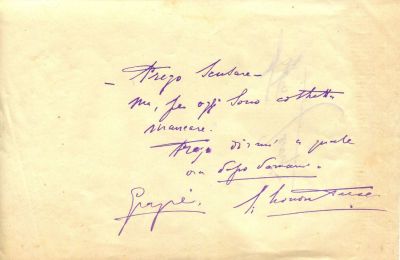 – Prego Scusare –
ma, per oggi sono costretta
mancare.
Prego dirmi a quale
ora dopo domani.
Grazie.